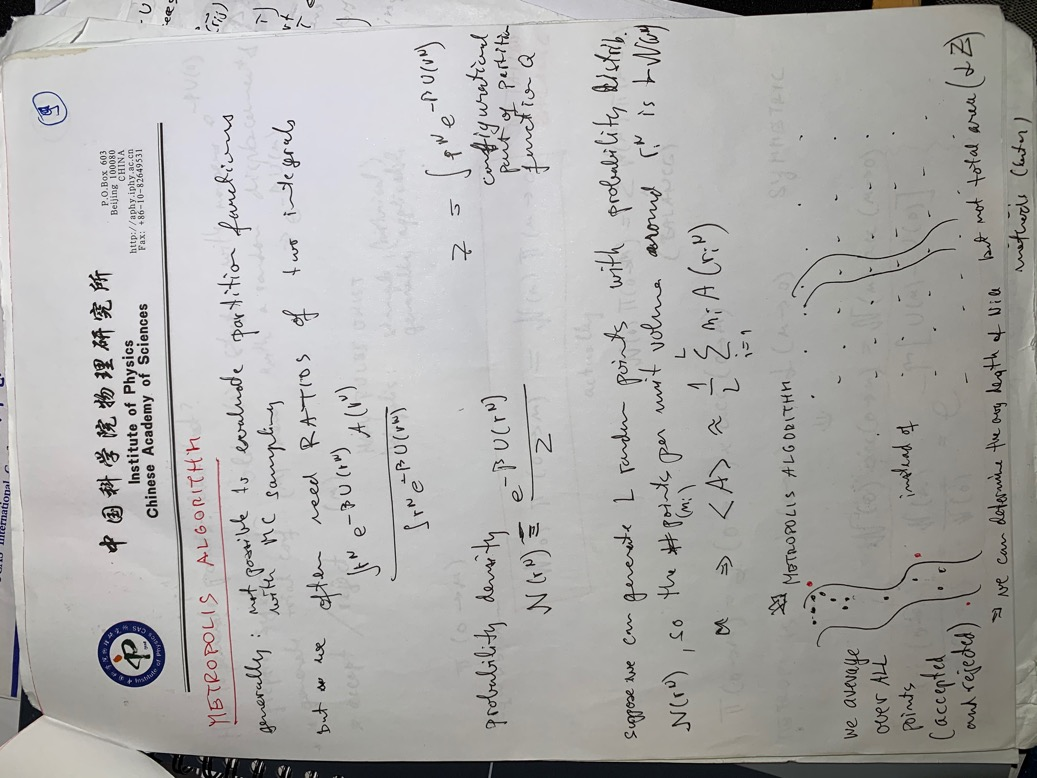 9
中国科学院物理研究所
Institute of Physics
Chinese Academy of Sciences
P.O.Box 603
Beijing 100080
CHINA
http://aphy.iphy.ac.cn
Fax: +86-10-82649531
METROPOLIS ALGORITHM
generally: not possible to evaluate partition functions
with MC sampling
but we often need RATIOS of two integrals
∫r^N e^-βU(r^N) A(r^N)
∫r^N e^-βU(r^N)
Z = ∫r^N e^-βU(r^N)
configurational
part of partition
function Q
probability density
N(r^N) ≡ e^-βU(r^N) / Z
suppose we can generate L random points with probability distrib.
N(r^N), so the # points per unit volume around r_i^N is L N(r^N)
(n_i)
⇒ <A> ≈ 1/L Σ_{i=1}^{L} n_i A(r_i^N)
METROPOLIS ALGORITHM
we average
over ALL
points
(accepted
and rejected)
instead of
⇒ we can determine the avg depth of Nile but not total area (& Z)
methods